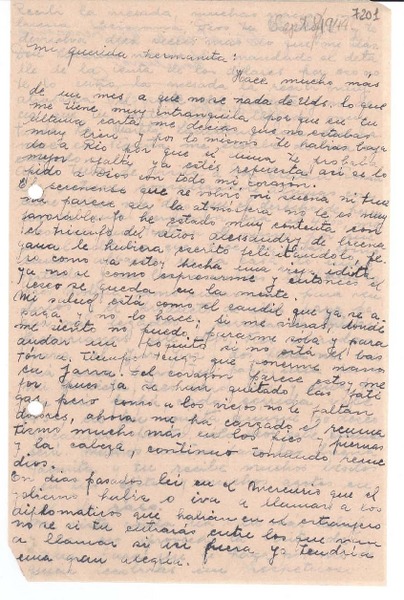 7201
Sept 8/944
Mi querida hermanita:
Hace mucho más
de un mes a que no se nada de Uds. lo que
me tiene muy intranquila por que en tu
última carta me decías que no estabas
muy bien y por lo mismo te habías baja
do a Río por que el clima te probaba
mejor ojalá ya estés repuesta así se lo
pido a Dios con todo mi corazón.
El sereno que se vino ni buena ni
me parece sea la atmósfera no le es muy
favorable. Yo he estado muy contenta con
el triunfo del señor Alessandri de buena
gana le hubiera escrito felicitándolo, pe
ro como ya estoy hecha una vieja idiota
ya no se como expresarme y entonces el
deseo se queda en la mente.
Mi salud está como el candil que ya se a-
paga y no lo hace; si me sienas, donde
me siento no puedo pararme sola y para
andar un poquito si no está el bas
tón a tiempo tengo que ponerme manos
en jarra. El corazón parece estoy me
jor pues ya se han quitado las fati
gas, pero como a los viejos no le faltan
dolores, ahora me ha cargado el reuma
tismo mucho más en los pies y piernas
y la cabeza, continuo tomando reme
dios.
En días pasados leí en el Mercurio que el
gobierno había o iva a llamar a los
diplomáticos que habían en el extranjero
no se si tu entrarás entre los que van
a llamar si así fuera ya tendría
una gran alegría.